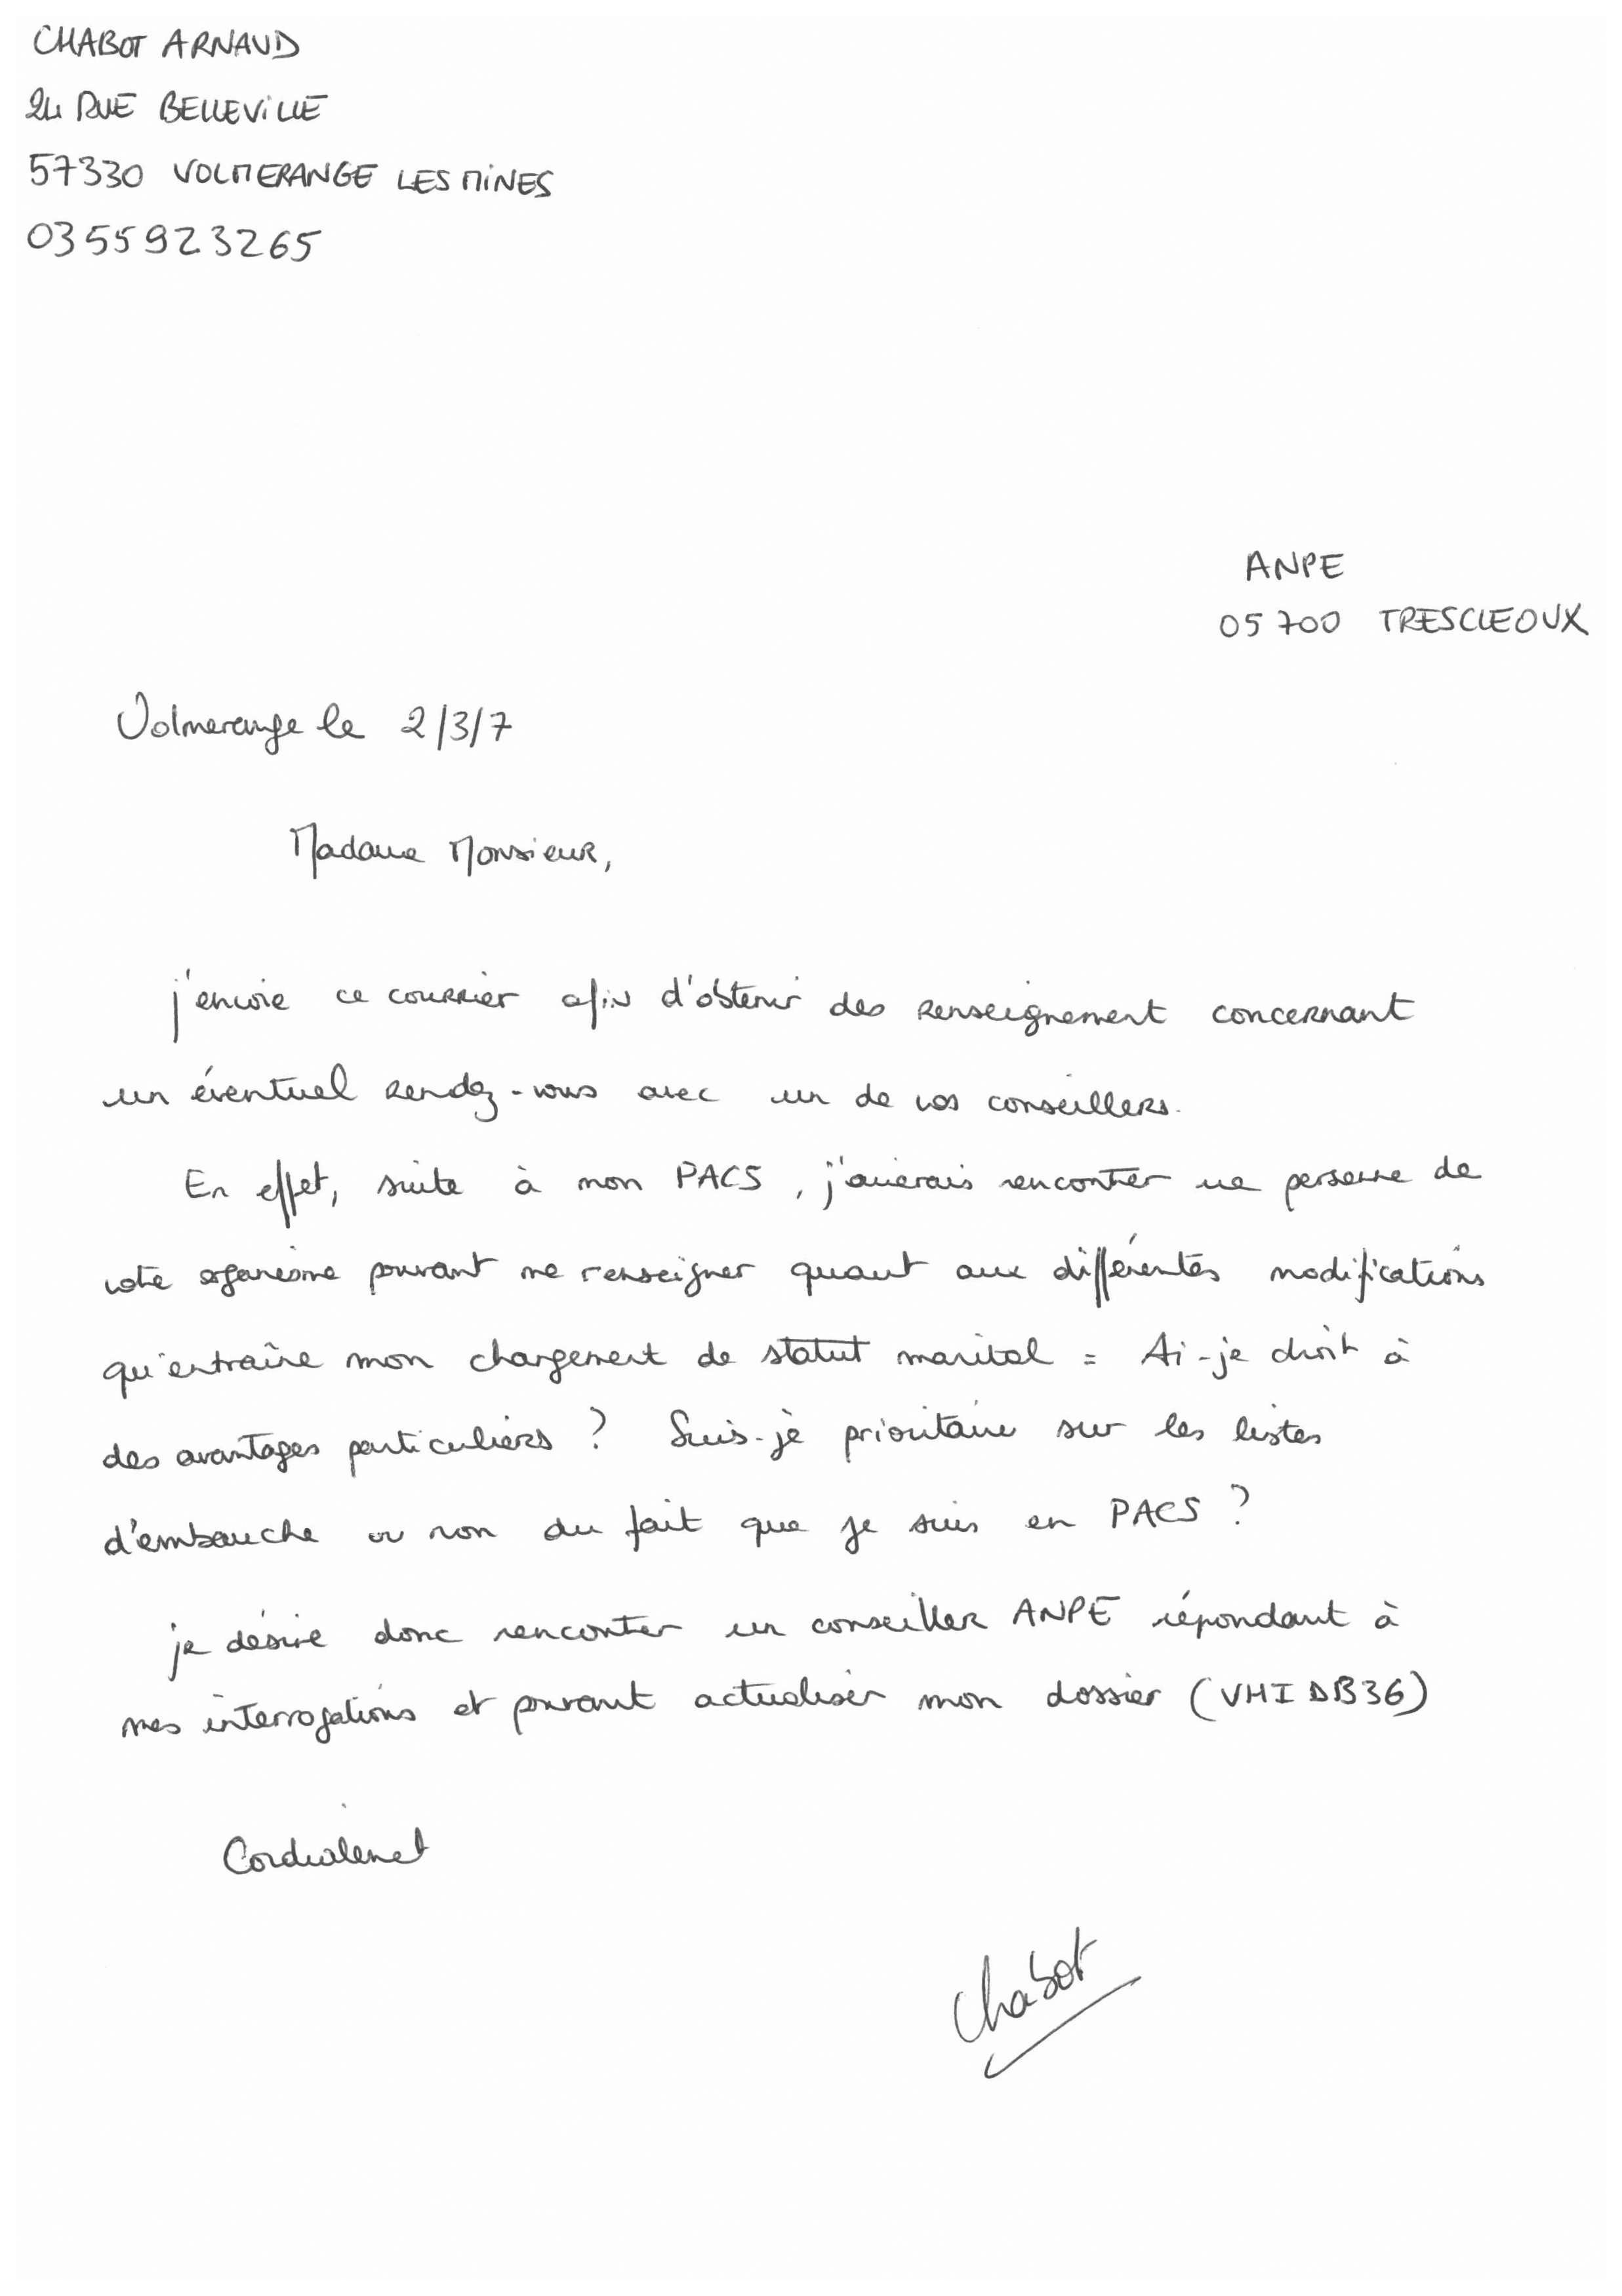 CHABOT ARNAUD
24 RUE BELLEVILLE
57330 VOLMERANGE LES MINES
0355923265
ANPE
05700 TRESCLEOUX
Volmerange le 2/3/7
Madame Monsieur,
j'envoie ce courrier afin d'obtenir des renseignement concernant
un éventuel rendez-vous avec un de vos conseillers.
En effet, suite à mon PACS, j'aimerais rencontrer une personne de
votre organisme pouvant me renseigner quant aux différentes modifications
qu'entraîne mon changement de statut marital = Ai-je droit à
des avantages particuliers ? Suis-je prioritaire sur les listes
d'embauche ou non du fait que je suis en PACS ?
je désire donc rencontrer un conseiller ANPE répondant à
mes interrogations et pouvant actualiser mon dossier (VHIDB36)
Cordialement
Chabot